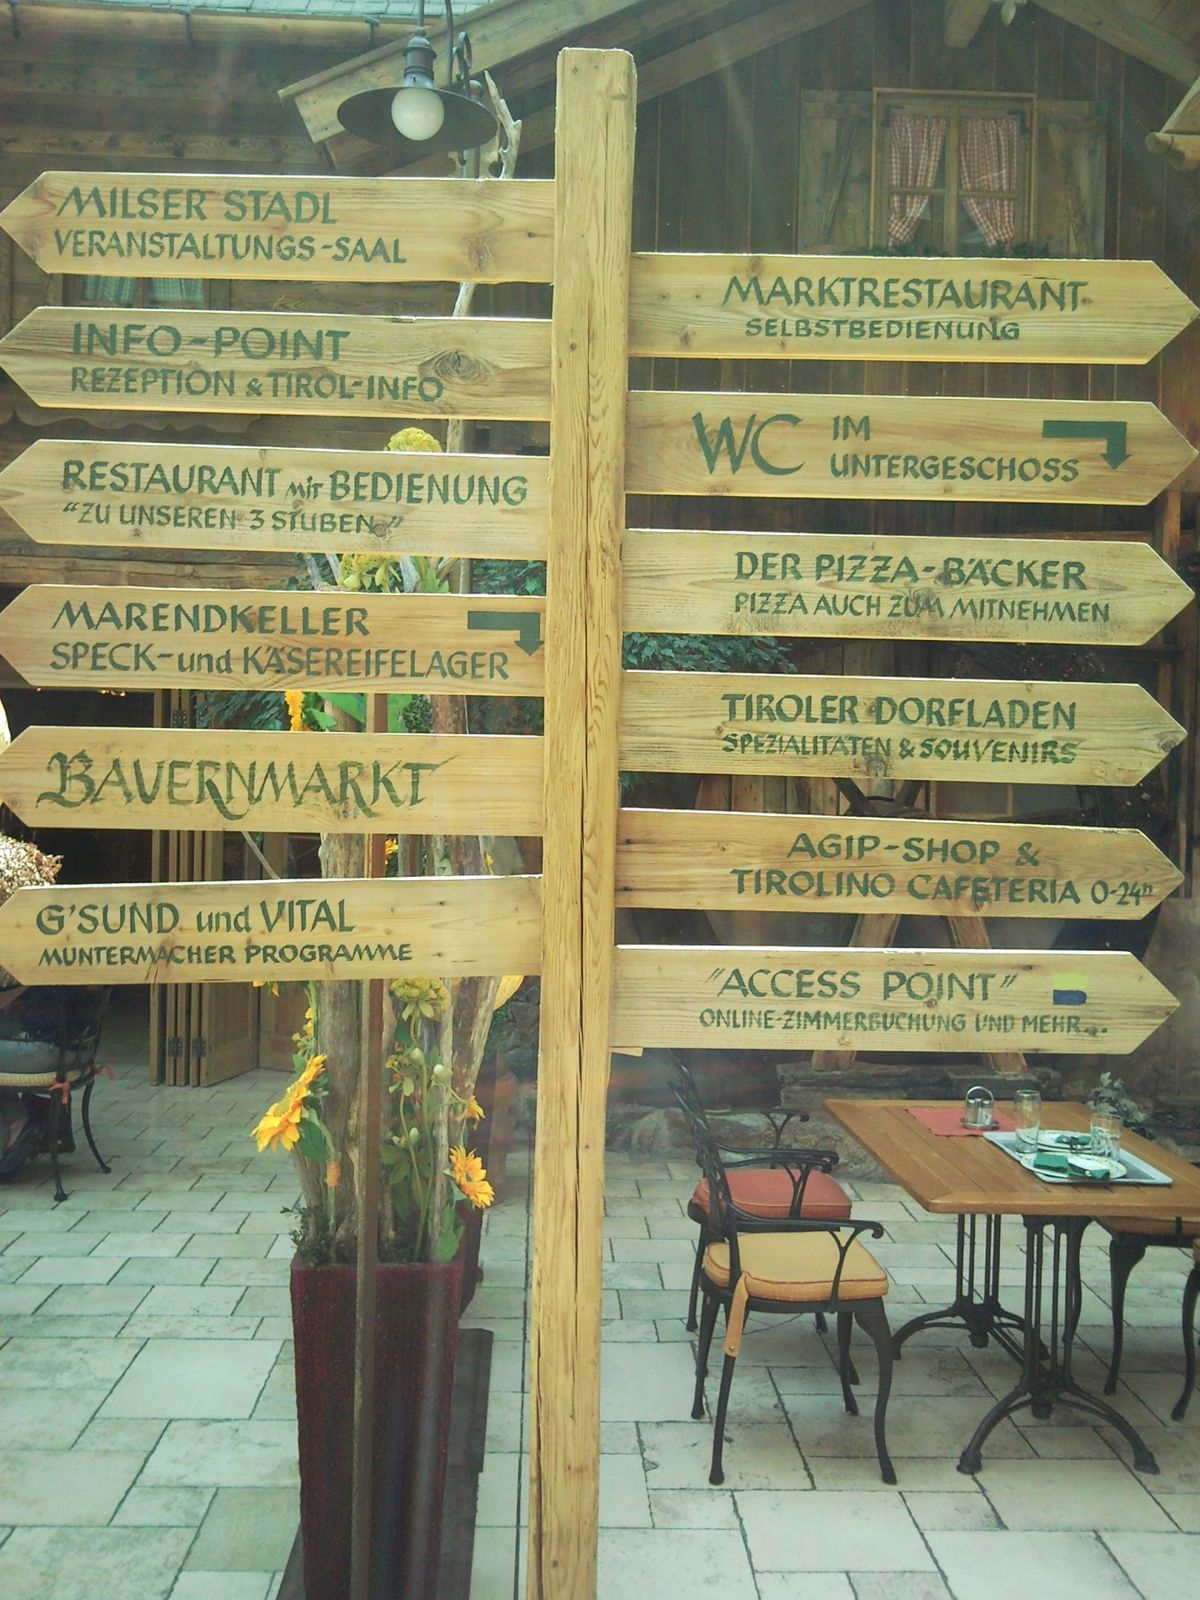 MILSER STADL
VERANSTALTUNGS-SAAL
INFO-POINT
REZEPTION & TIROL-INFO
RESTAURANT mit BEDIENUNG
"ZU UNSEREN 3 STUBEN"
MARENDKELLER
SPECK-und KÄSEREIFELAGER
BAUERNMARKT
G'SUND und VITAL
MUNTERMACHER PROGRAMME
MARKTRESTAURANT
SELBSTBEDIENUNG
WC IM
UNTERGESCHOSS
DER PIZZA-BÄCKER
PIZZA AUCH ZUM MITNEHMEN
TIROLER DORFLADEN
SPEZIALITÄTEN & SOUVENIRS
AGIP-SHOP &
TIROLINO CAFETERIA 0-24h
"ACCESS POINT"
ONLINE-ZIMMERBUCHUNG UND MEHR...